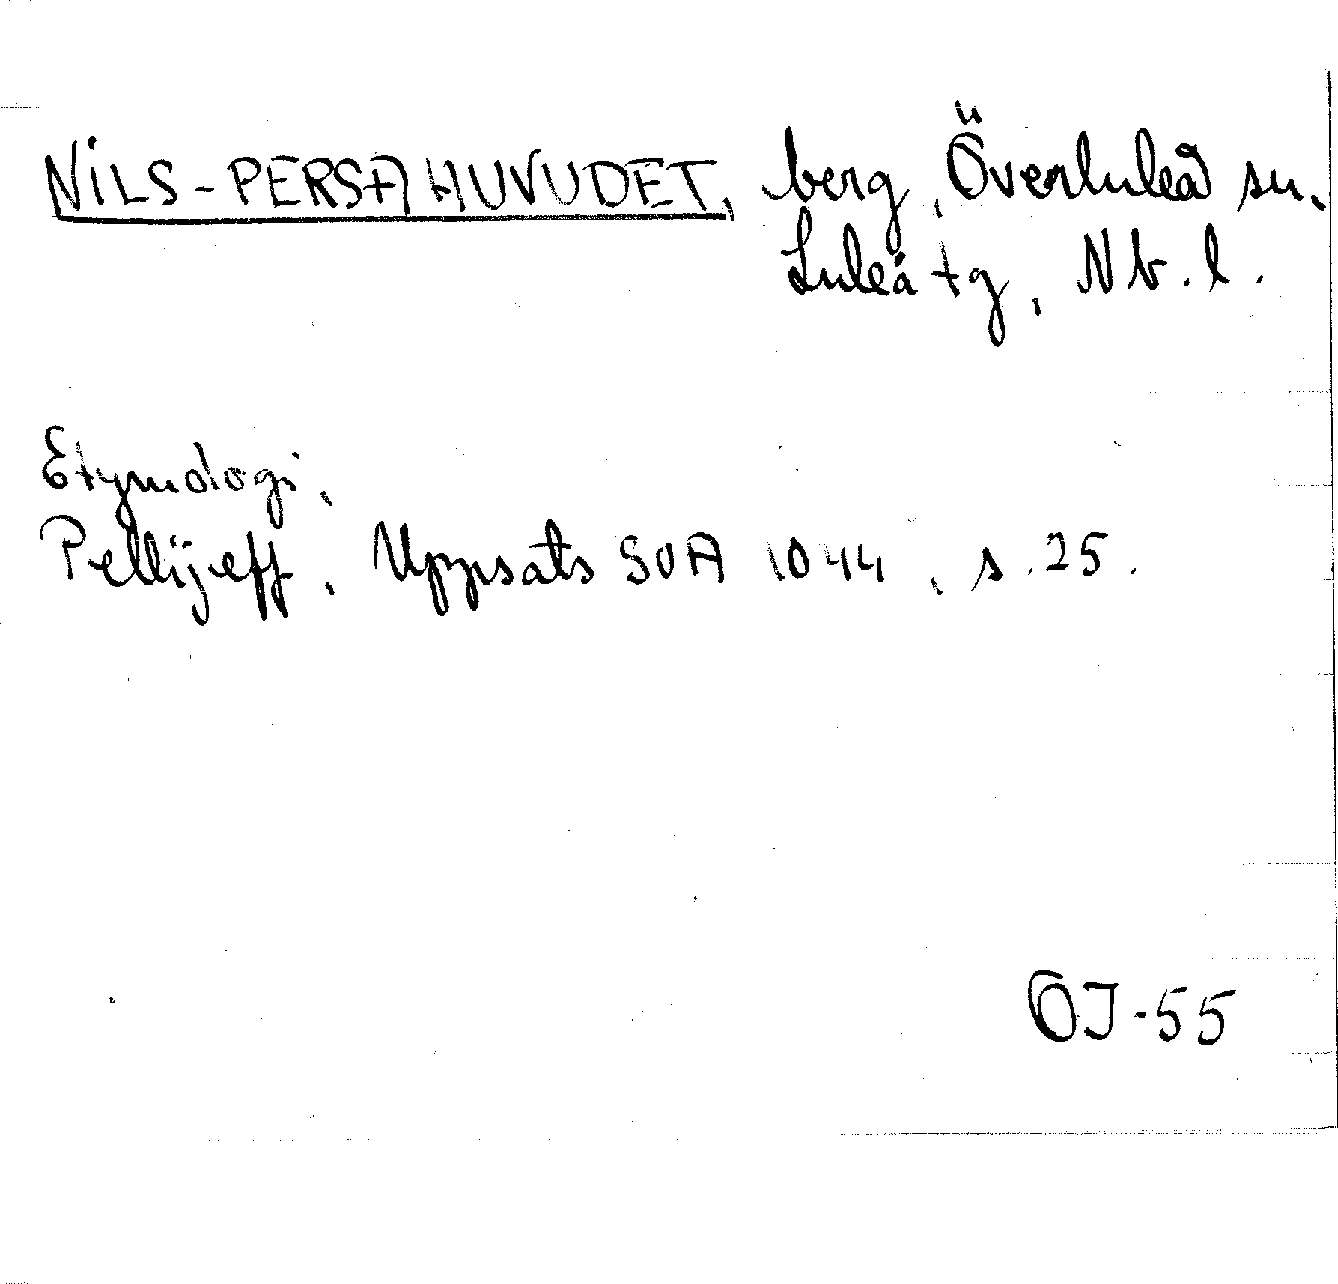 NILS-PERSA HUVUDET, berg, Överluleå sn.
Luleå tg, Nb.l.
Etymologi,
Pellijeff, Uppsats SOA 1044, s. 25.
OJ-55